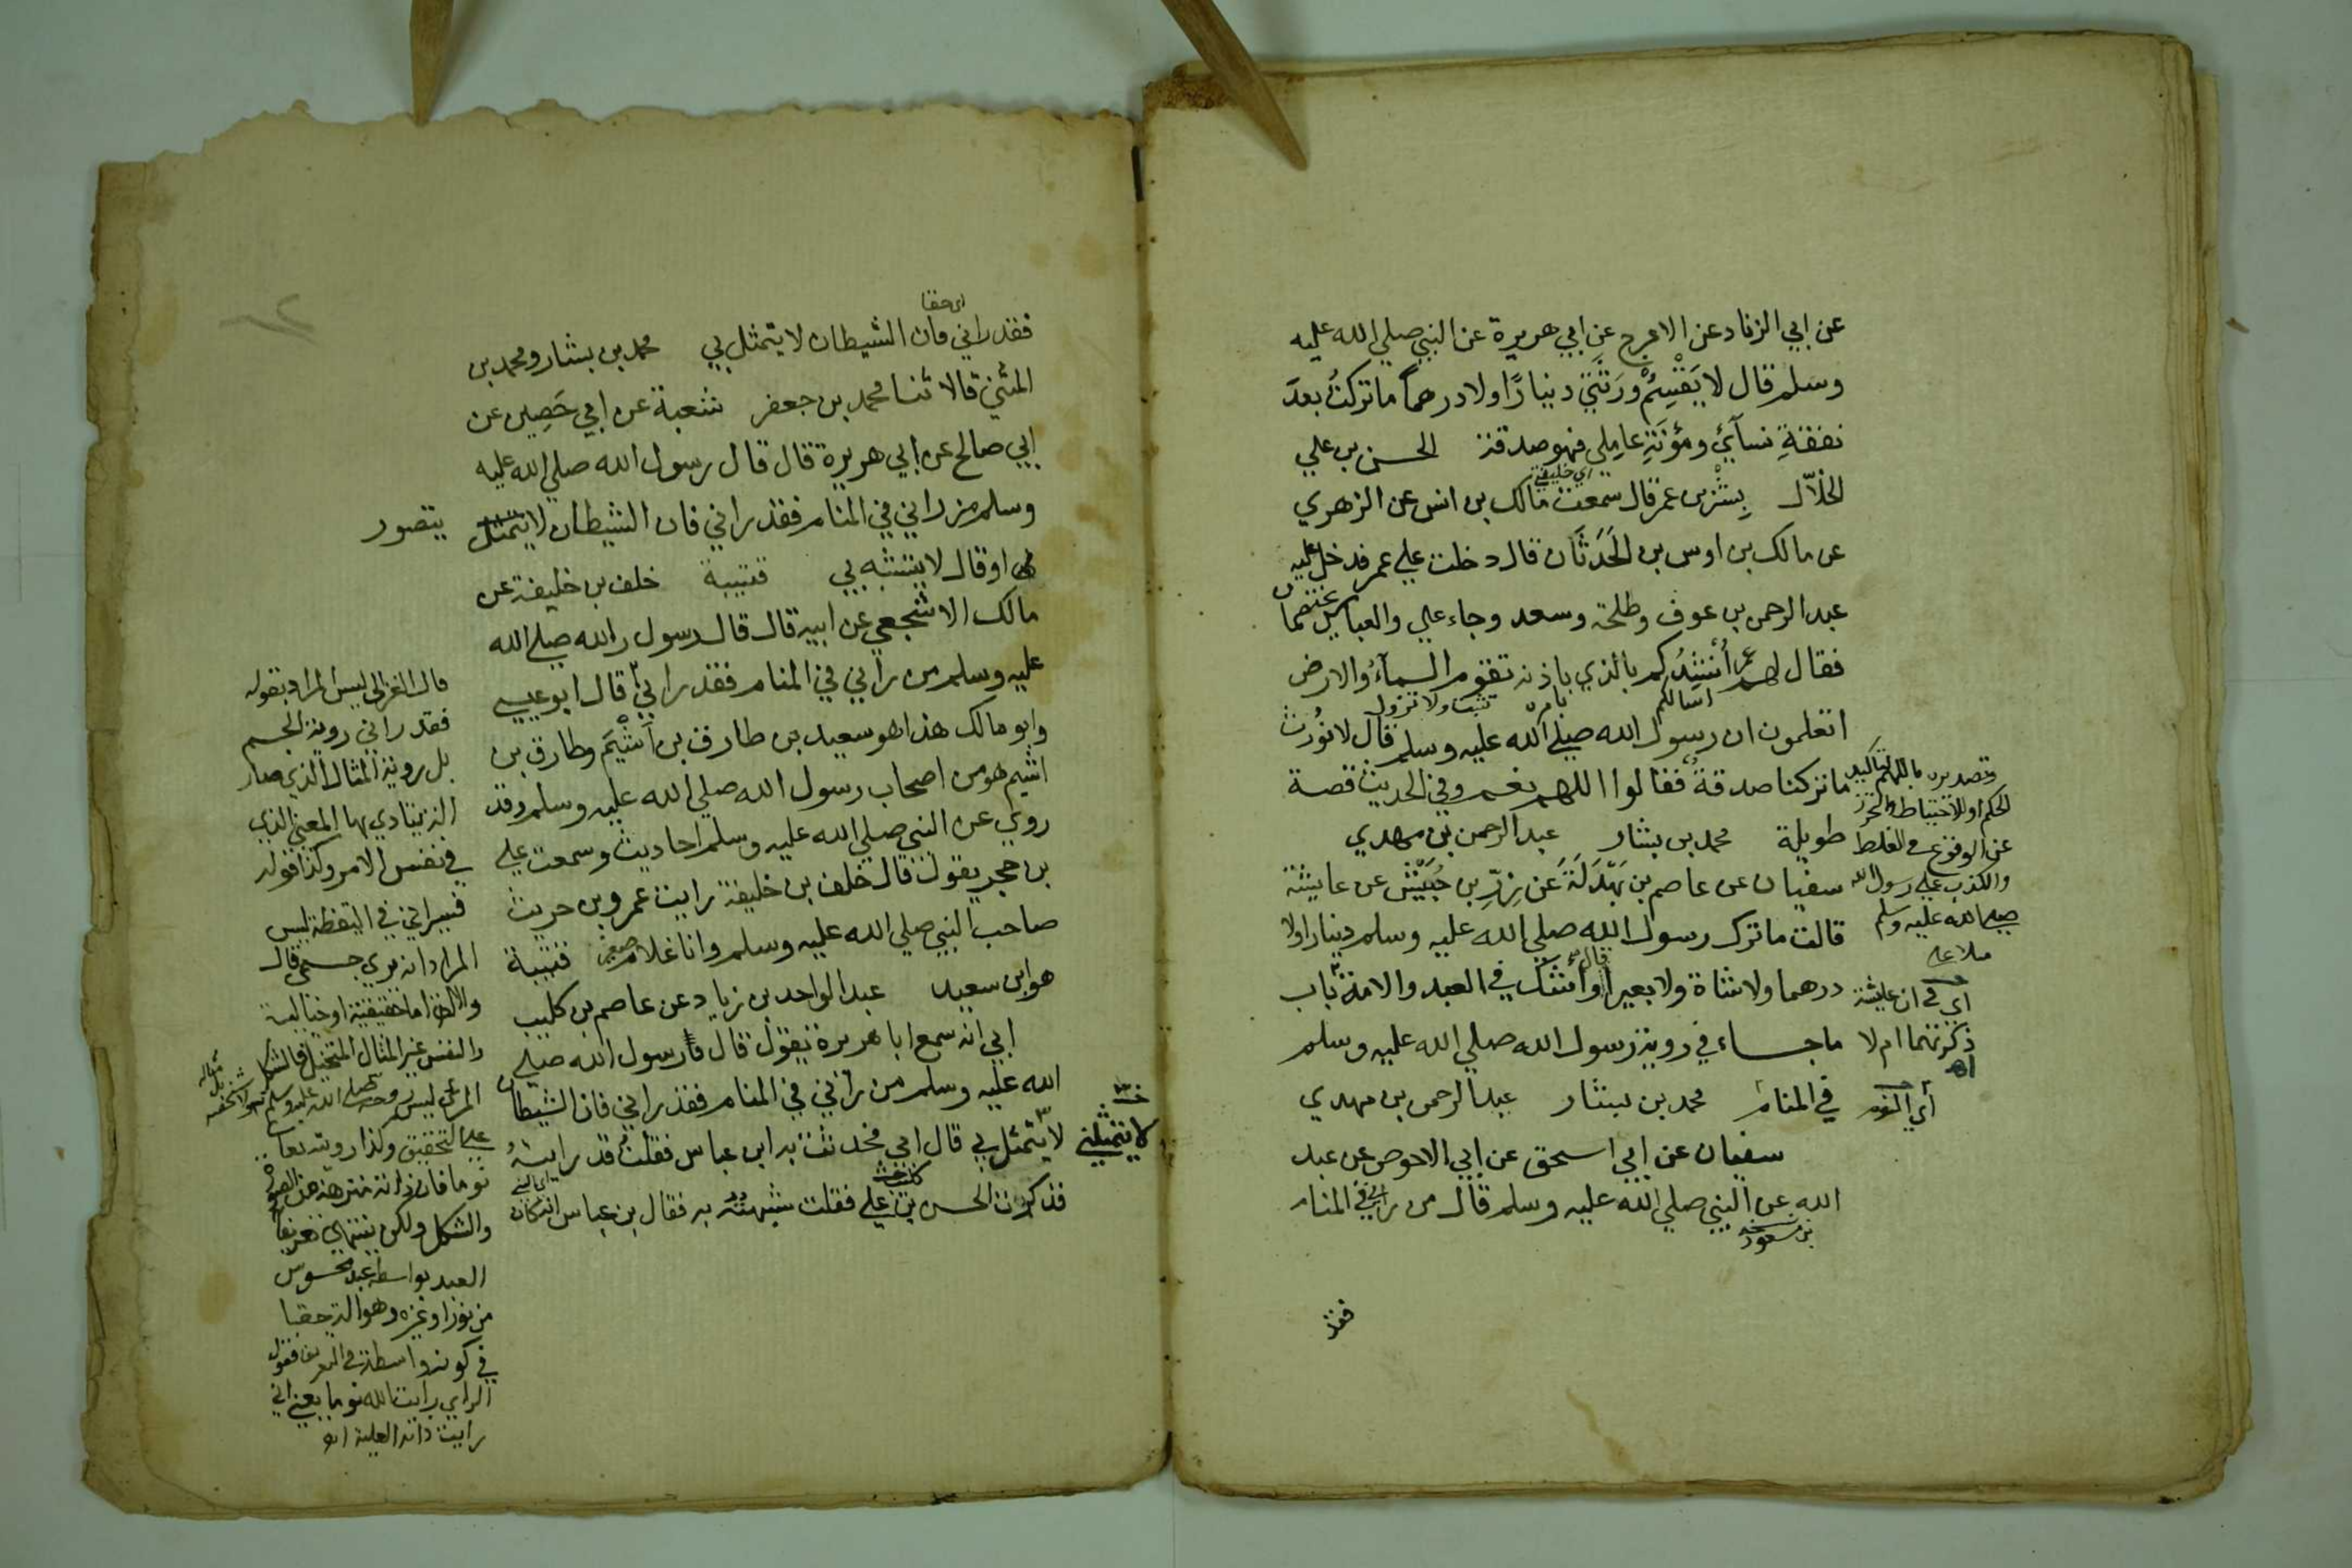 عن ابي الزناد عن الاعرج عن ابي هريرة عن النبي صلي الله عليه
وسلم قال لا يَقْسِمُ ورَثَتي دينارًا ولا درهمًا ما تركتُ بعدَ
نفقةِ نسآئي ومؤنَةِ عامِلي فهو صدقة الحسن بن علي
اي خليفتي
الخلّال بِشْر بن عمر قال سمعت مالك بن انس عن الزهري
عن مالك بن اوس بن الحَدَثَان قال دخلت علي عمر فدخل عليه
عبد الرحمن بن عوف وطلحة وسعد وجاء علي والعباس يختصمان
فقال لهم عمر أَنْشُدُكم بالذي باذنه تقوم السمآءُ والارض
اسالكم بامره تثبت ولا تزول
اتعلمون ان رسول الله صلي الله عليه وسلم قال لا نُورَث
ما تركنا صدقةٌ فقالوا اللهم نعم وفي الحديث قصة
طويلة محمد بن بشار عبد الرحمن بن مهدي
سفيان عن عاصم بن بَهْدَلَةَ عن زِرِّ بن حُبَيْش عن عايشة
قالت ما ترك رسول الله صلي الله عليه وسلم دينارا ولا
درهما ولا شاة ولا بعيرا قال وأشك في العبد والامة باب
ما جاء في روية رسول الله صلي الله عليه وسلم
في المنام محمد بن بشار عبد الرحمن بن مهدي
سفيان عن ابي اسحق عن ابي الاحوص عن عبد
الله عن النبي صلي الله عليه وسلم قال من راني في المنام
بن مسعود
فقد
وتصديره باللهم لتاكيد
الحكم او للاحتياط والتحرز
عن الوقوع في الغلط
والكذب علي رسول الله
صلي الله عليه وسلم
ملا علي
اي في ان عايشة
ذكرتهما ام لا
اه
أي النوم
اي حقا
فقد راني فان الشيطان لا يتمثل بي محمد بن بشار ومحمد بن
المثني قالا ثنا محمد بن جعفر شعبة عن ابي حَصِين عن
ابي صالح عن ابي هريرة قال قال رسول الله صلي الله عليه
وسلم من راني في المنام فقد راني فان الشيطان لا يتمثل يتصور
او قال لا يتشبه بي قتيبة خلف بن خليفة عن
مالك الاشجعي عن ابيه قال قال رسول الله صلي الله
عليه وسلم من راني في المنام فقد راني قال ابو عيسي
وابو مالك هذا هو سعيد بن طارق بن أَشْيَمَ وطارق بن
اشيم هو من اصحاب رسول الله صلي الله عليه وسلم وقد
روي عن النبي صلي الله عليه وسلم احاديث وسمعت علي
بن حجر يقول قال خلف بن خليفة رايت عمرو بن حريث
صاحب النبي صلي الله عليه وسلم وانا غلام صغير قتيبة
هو ابن سعيد عبد الواحد بن زياد عن عاصم بن كليب
ابي انه سمع ابا هريرة يقول قال رسول الله صلي
الله عليه وسلم من راني في المنام فقد راني فان الشيطان
لا يتمثل بي قال ابي فحدثت به ابن عباس فقلت قد رايته
لا يتمثلني
فذكرت الحسن بن علي فقلت شبهته به فقال بن عباس انه كان
قال الغزالي ليس المراد بقوله
فقد راني روية الجسم
بل روية المثال الذي صار
الة يتادي بها المعني الذي
في نفس الامر وكذا قوله
فسيراني في اليقظة ليس
المراد انه يري جسمي قال
والآلة اما حقيقية او خيالية
والنفس غير المثال المتخيل فالشكل
المرئي ليس روحه صلي الله عليه وسلم
علي التحقيق وكذا رويته تعالي
نوما فان ذاته منزهة عن الصورة
والشكل ولكن ينتهي تعريفا
العبد بواسطة محسوس
من نور او غيره وهو الة حقا
في كونه واسطة في التعريف فقول
الراي رايت الله نوما لا يعني اني
رايت ذاته العلية اه